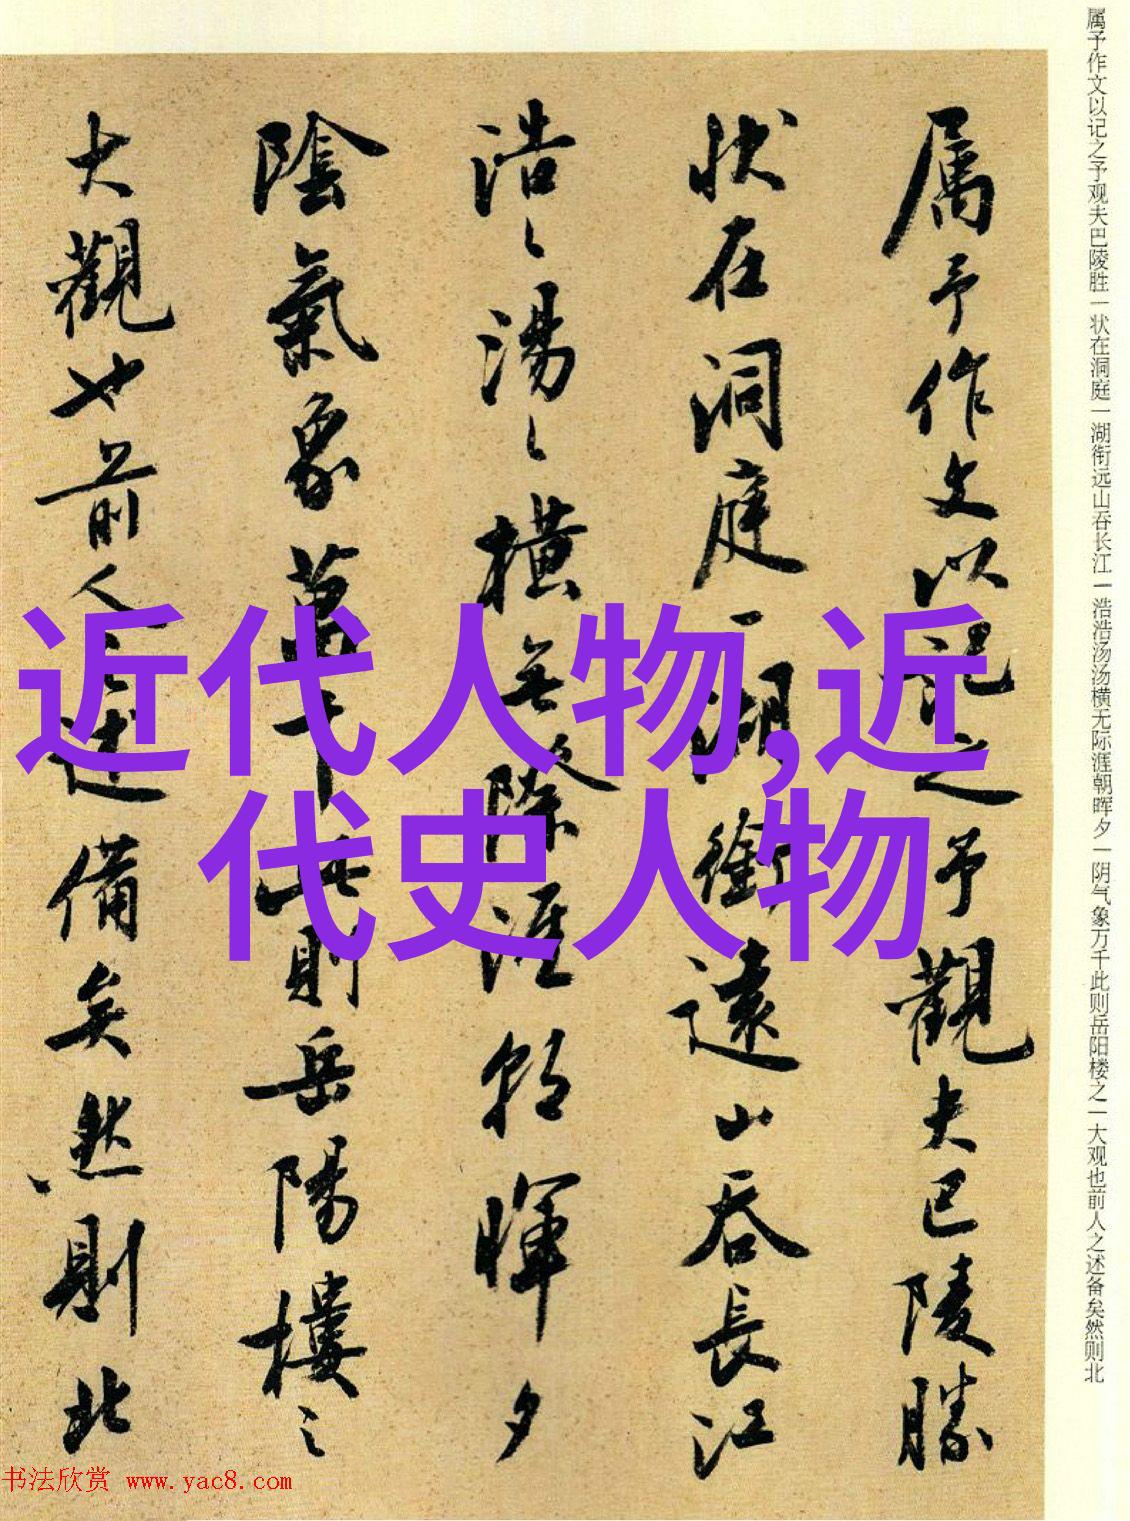 属予作文以记之予观夫巴陵胜一状在洞庭一湖衔远山吞长江一浩浩汤汤横无际涯朝晖夕一阴气象万千此则岳阳楼之一大观也前人之述备矣然则北
属予作文以记之予觀夫巴陵勝
状在洞庭一湖銜遠山吞長江
浩〻湯〻橫無際涯朝暉夕
陰氣象萬千此則岳陽樓之
大觀也前人之述備矣然則北
近代人物,近
代史人物
书法欣赏 www.yac8.com